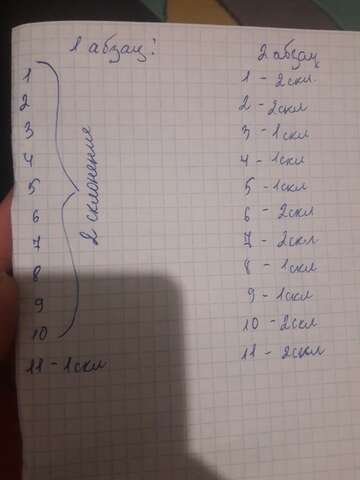 1 абзац:
1
2
3
4
5
6
7
8
9
10
2 склонение
11 - 1скл
2 абзац
1 - 2скл.
2 - 2скл
3 - 1скл
4 - 1скл
5 - 1скл
6 - 2скл
7 - 2скл
8 - 1скл
9 - 1скл
10 - 2скл
11 - 2скл